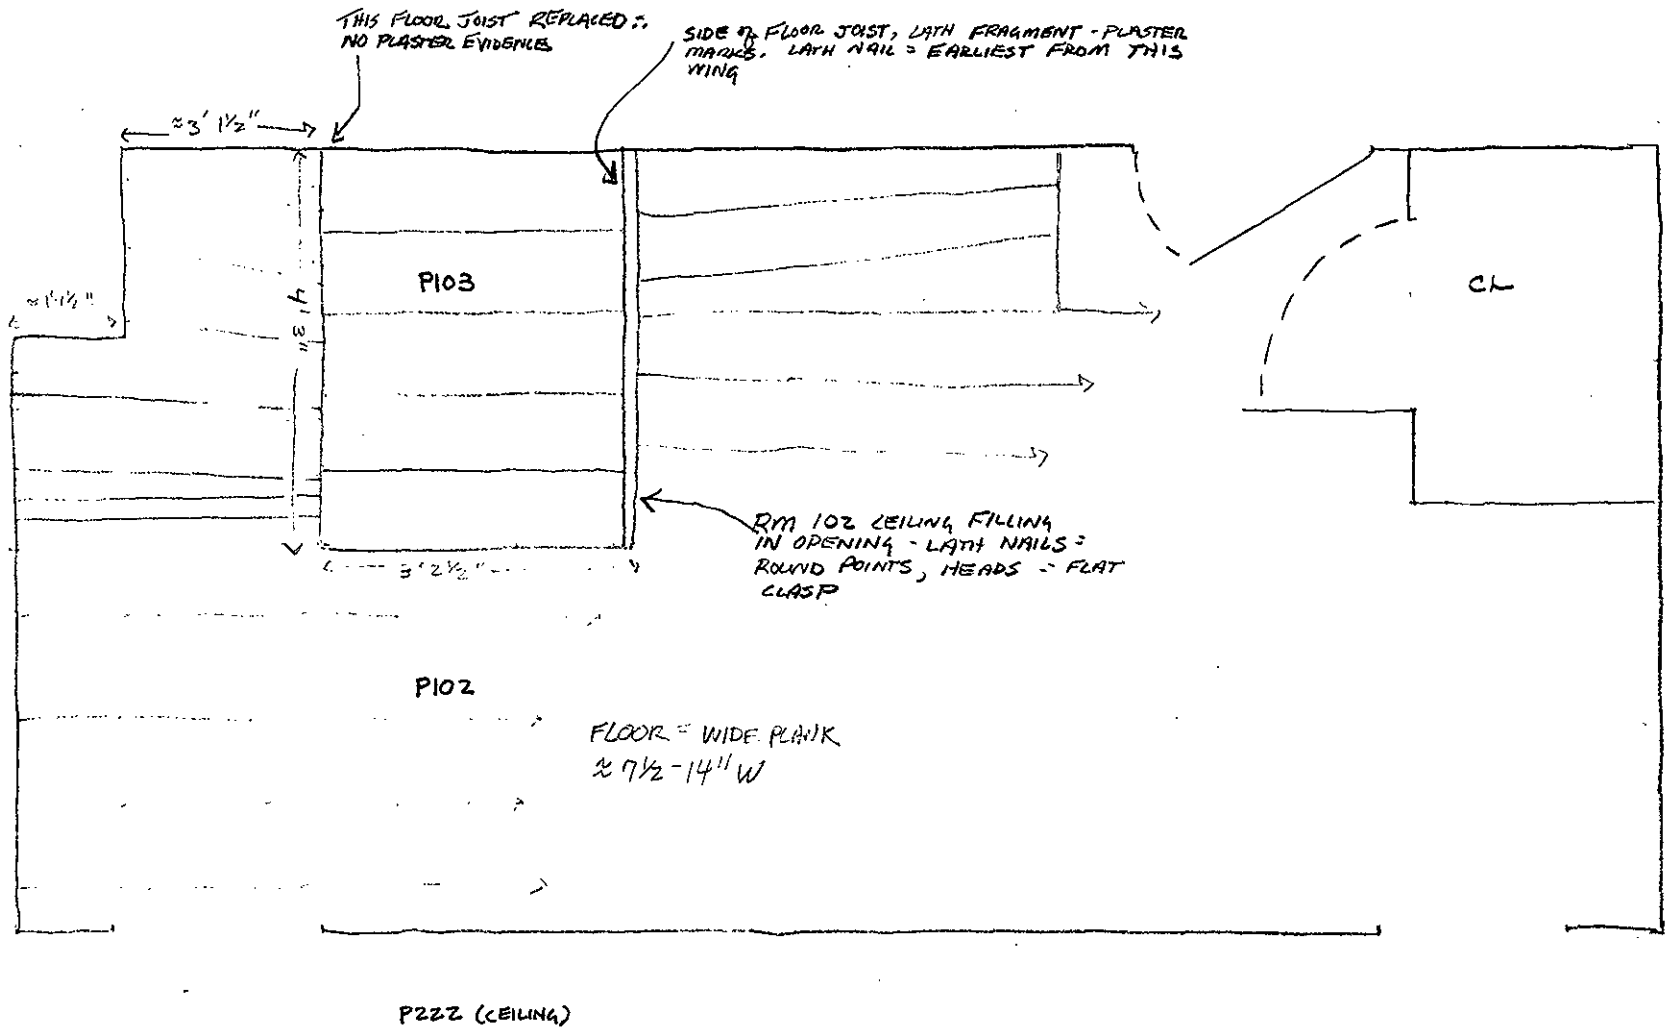 THIS FLOOR JOIST REPLACED ∴
NO PLASTER EVIDENCE
SIDE OF FLOOR JOIST, LATH FRAGMENT - PLASTER
MARKS. LATH NAIL = EARLIEST FROM THIS
WING
≈3' 1½"
P103
CL
≈1'1½"
4'3"
RM 102 CEILING FILLING
IN OPENING - LATH NAILS =
ROUND POINTS, HEADS = FLAT
CLASP
3'2½"
P102
FLOOR = WIDE PLANK
≈ 7½-14" W
P222 (CEILING)